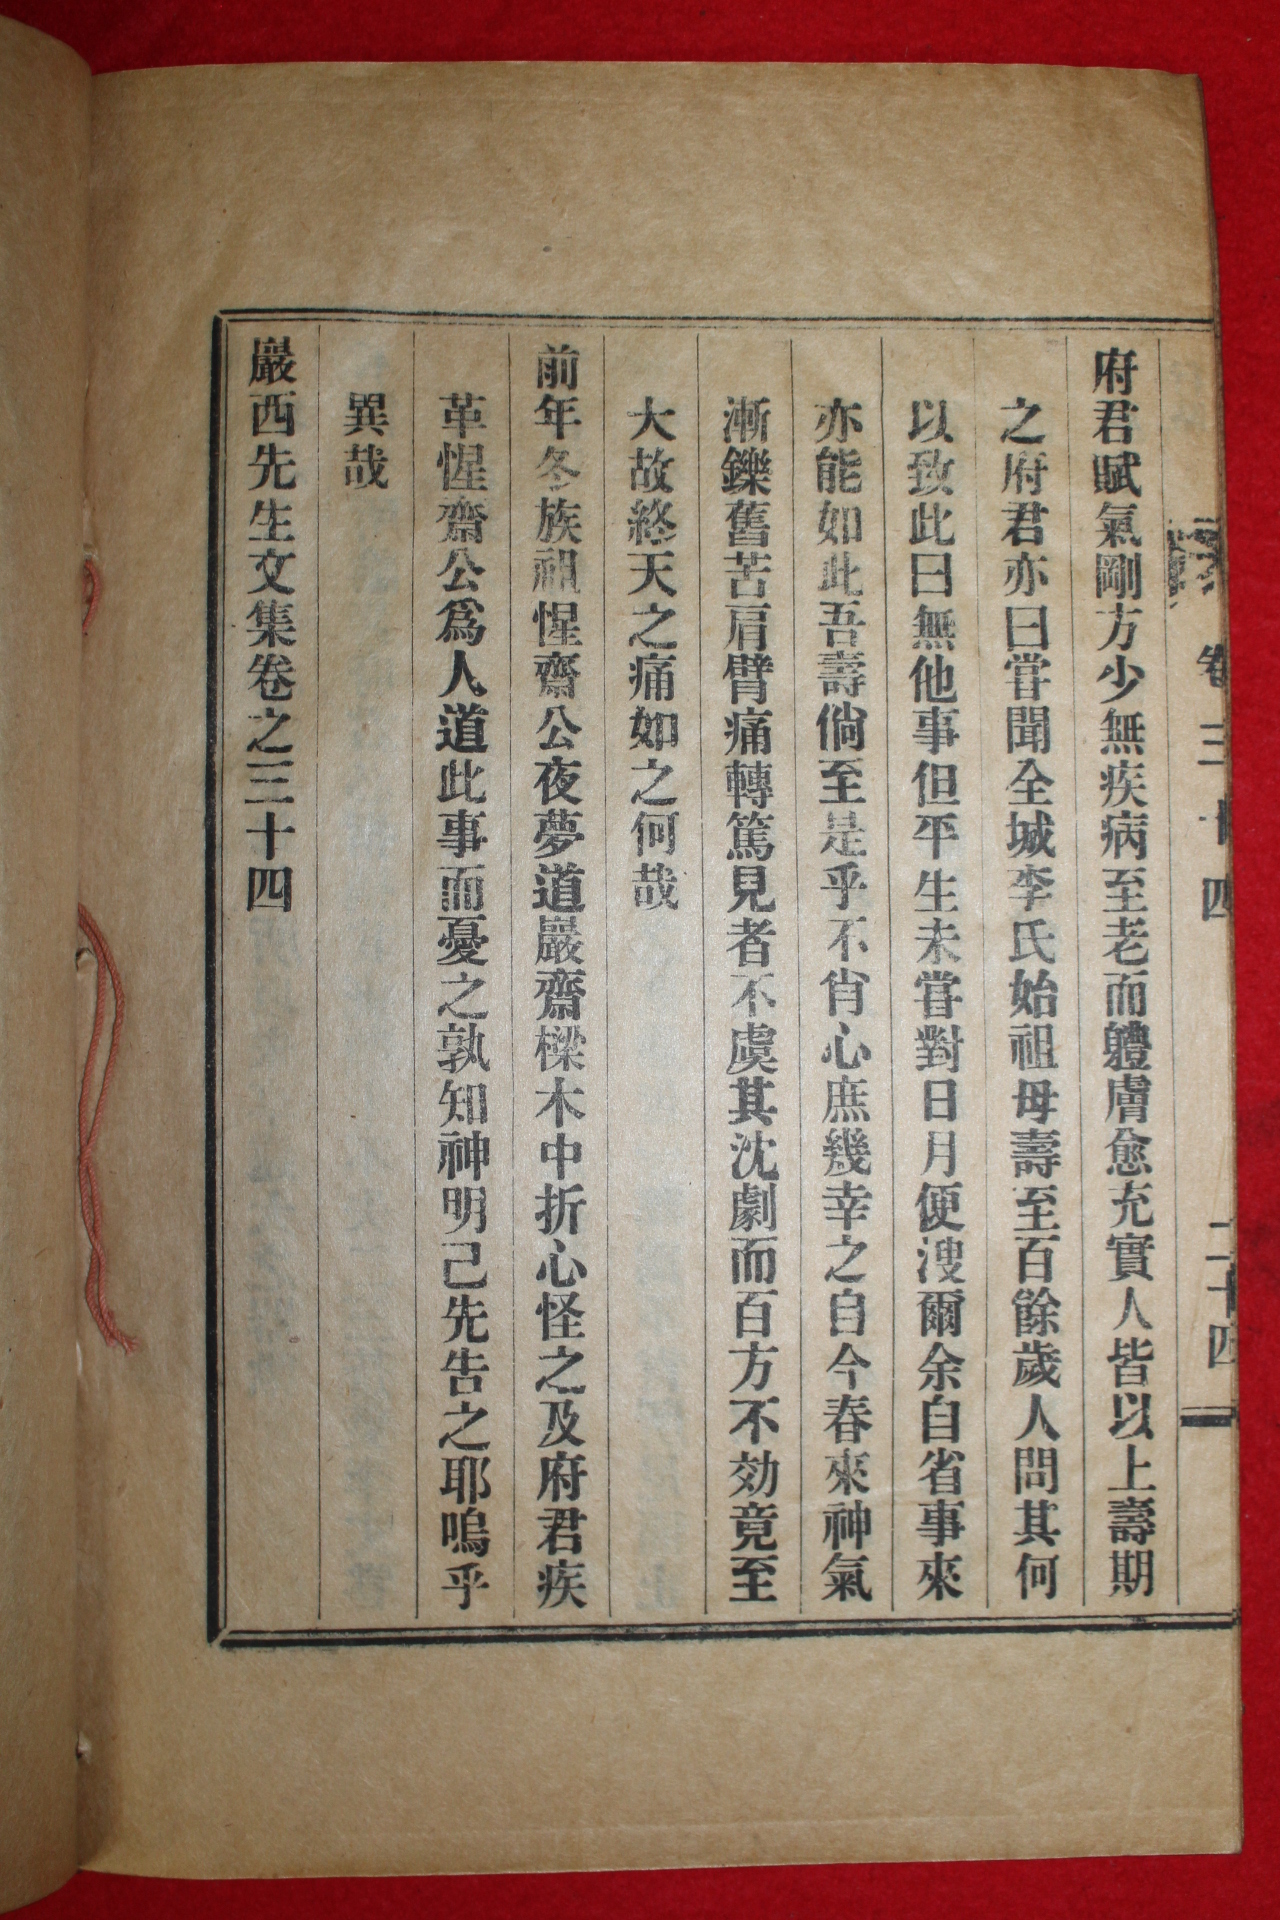 府君賦氣剛方少無疾病至老而軆膚愈充實人皆以上壽期
之府君亦曰嘗聞全城李氏始祖母壽至百餘歲人問其何
以致此曰無他事但平生未嘗對日月便溲爾余自省事來
亦能如此吾壽倘至是乎不肖心庶幾幸之自今春來神氣
漸鑠舊苦肩臂痛轉篤見者不虞其沈劇而百方不効竟至
大故終天之痛如之何哉
前年冬族祖惺齋公夜夢道巖齋樑木中折心怪之及府君疾
革惺齋公爲人道此事而憂之孰知神明己先告之耶嗚乎
異哉
巖西先生文集卷之三十四
卷三十四
二十四